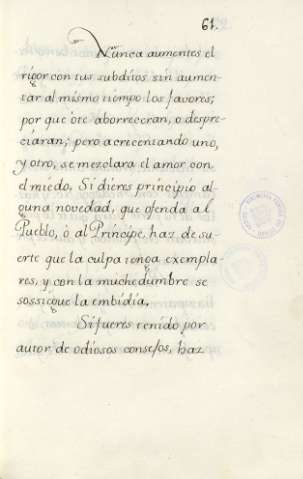 61.
Nunca aumentes el
rigor con tus subditos sin aumen-
tar al mismo tiempo los favores;
por que ôte aborreceran, o despre-
ciaran; pero acrecentando uno,
y otro, se mezclara el amor con
el miedo. Si dieres principio al-
guna novedad, que ofenda al
Pueblo, ò al Principe, haz de su-
erte que la culpa tenga exempla-
res, y con la muchedumbre se
sossiegue la embidia.
Si fueres tenido por
autor de odiosos consejos, haz